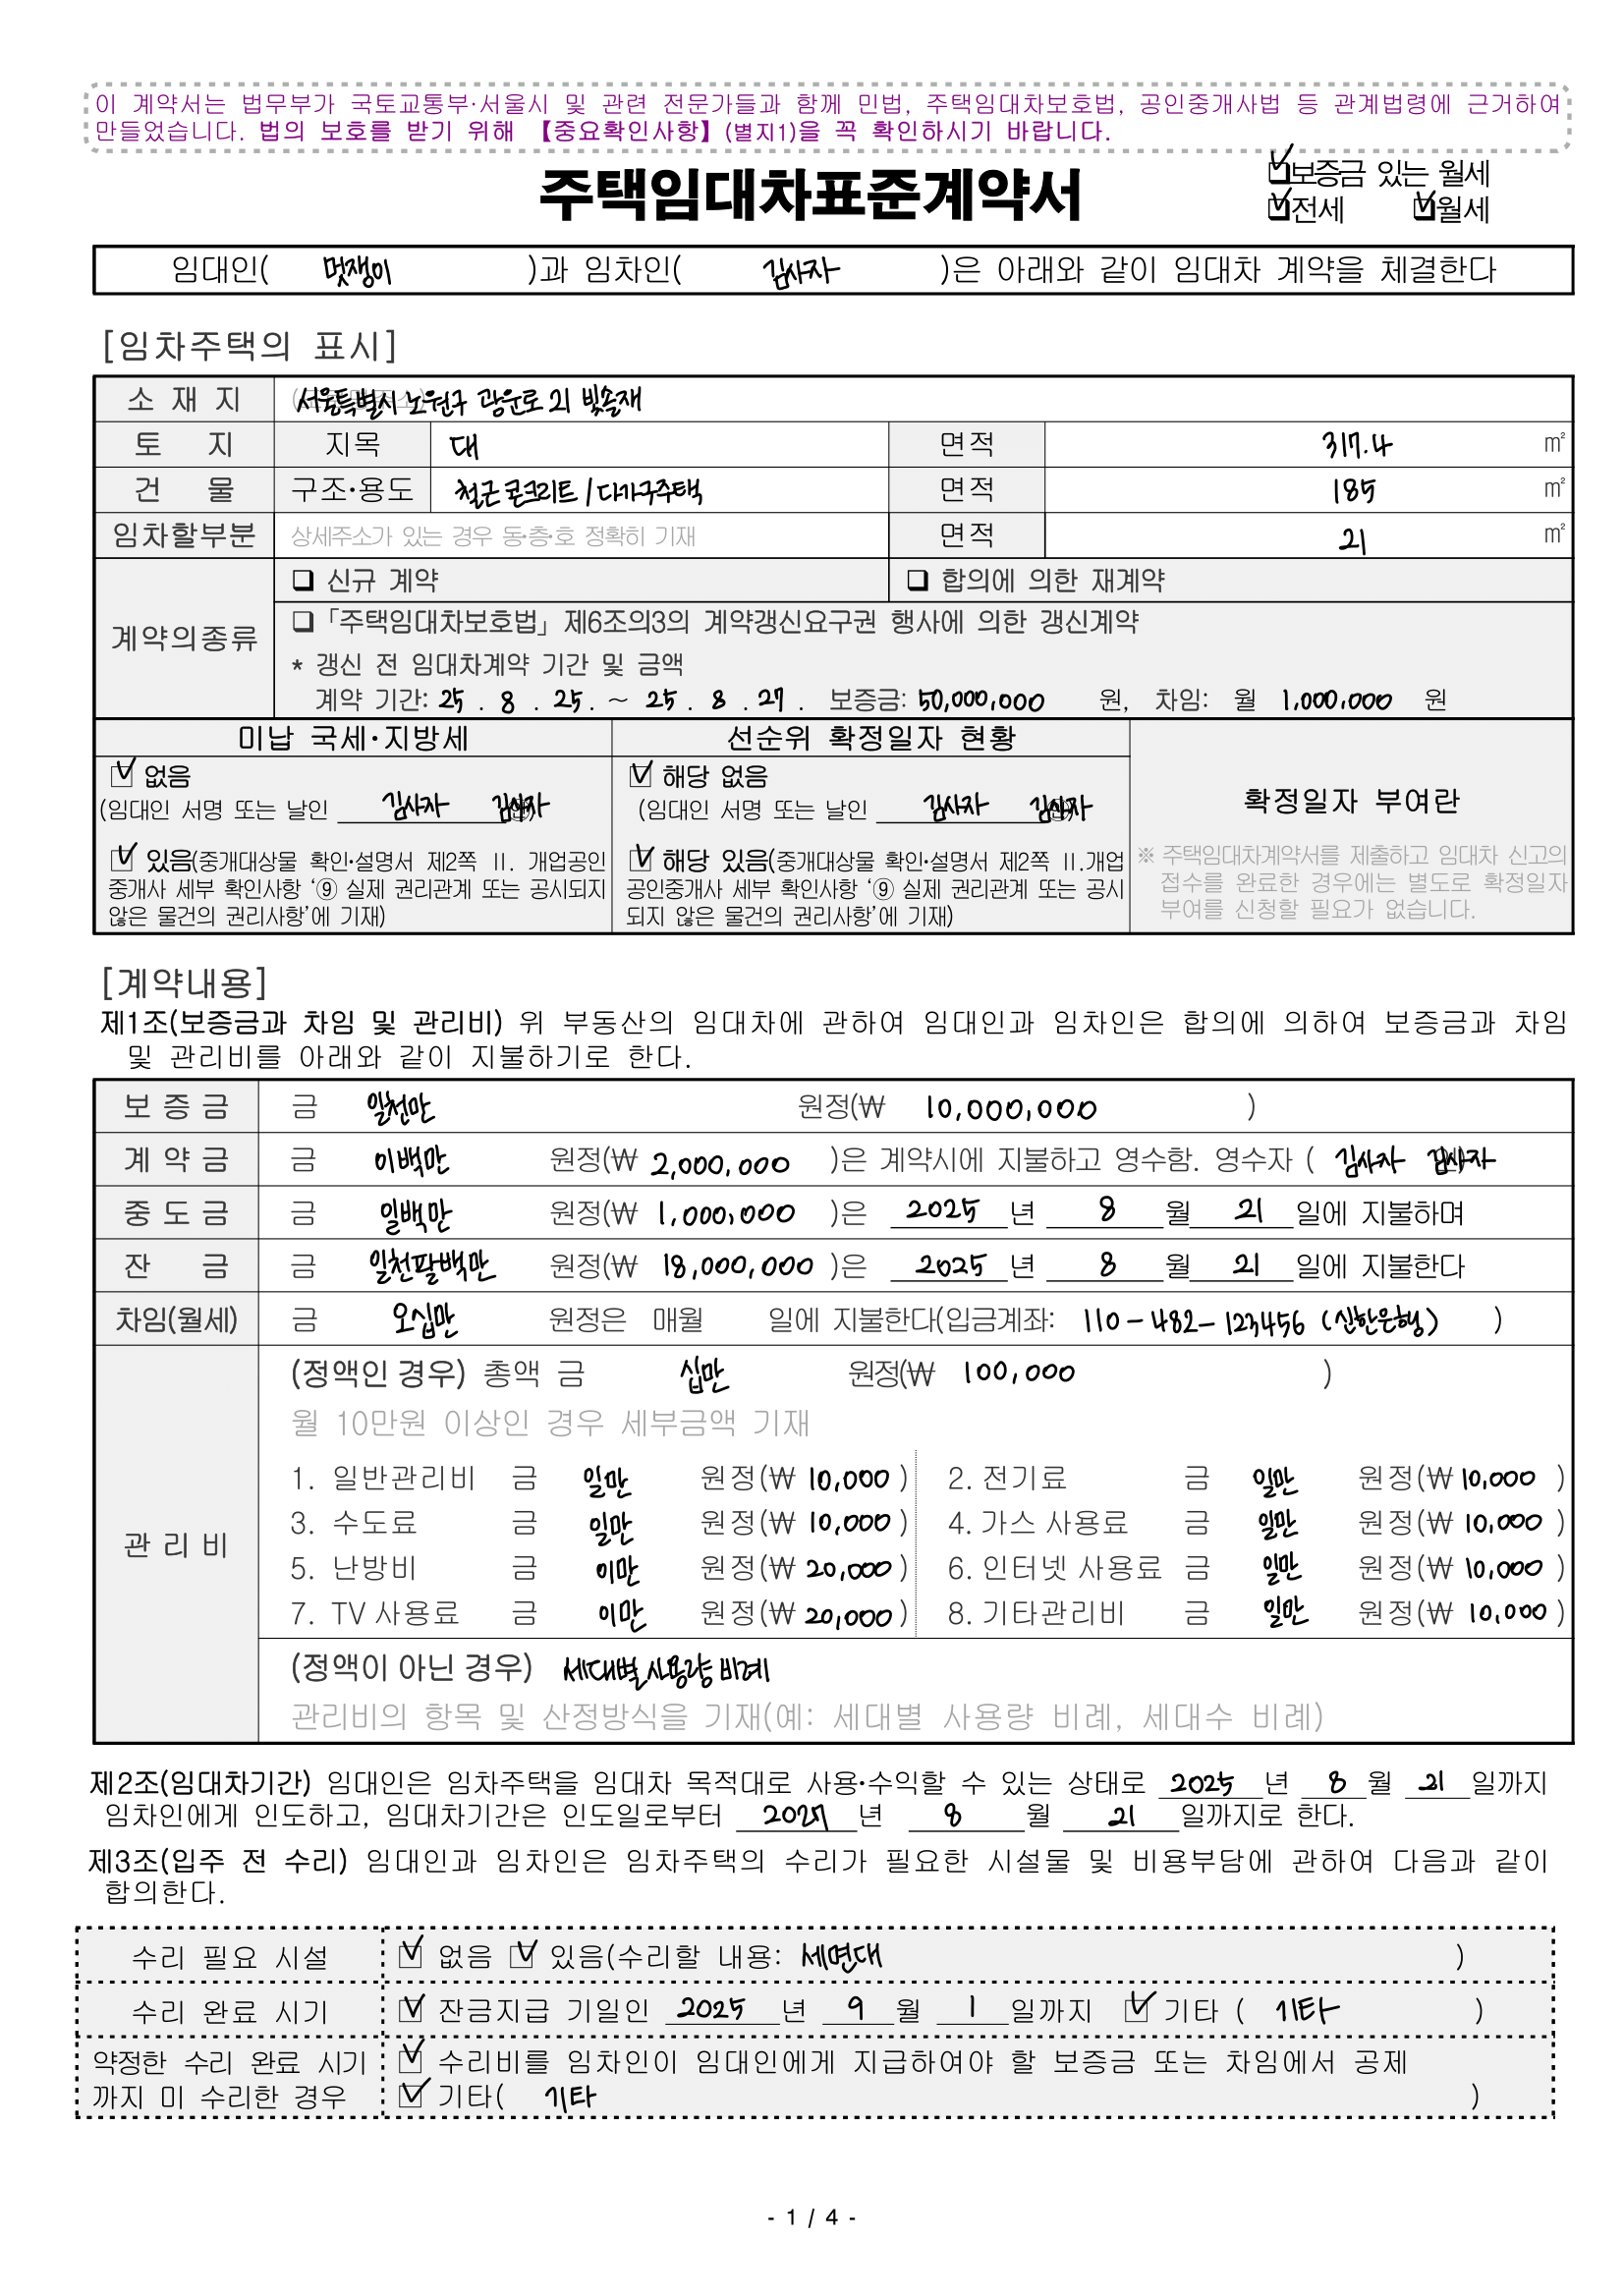 이 계약서는 법무부가 국토교통부·서울시 및 관련 전문가들과 함께 민법, 주택임대차보호법, 공인중개사법 등 관계법령에 근거하여
만들었습니다. 법의 보호를 받기 위해 【중요확인사항】(별지1)을 꼭 확인하시기 바랍니다.
주택임대차표준계약서
☑보증금 있는 월세
☑전세 ☑월세
임대인( 멋쟁이 )과 임차인( 김사자 )은 아래와 같이 임대차 계약을 체결한다
[임차주택의 표시]
소 재 지 서울특별시 노원구 광운로 21 빛솔재
토 지 지목 대 면적 317.4 ㎡
건 물 구조·용도 철근콘크리트 / 다가구주택 면적 185 ㎡
임차할부분 상세주소가 있는 경우 동·층·호 정확히 기재 면적 21 ㎡
계약의종류 ❏ 신규 계약 ❏ 합의에 의한 재계약
❏「주택임대차보호법」제6조의3의 계약갱신요구권 행사에 의한 갱신계약
* 갱신 전 임대차계약 기간 및 금액
계약 기간: 25 . 8 . 25. ~ 25 . 8 . 27 . 보증금: 50,000,000 원, 차임: 월 1,000,000 원
미납 국세·지방세 선순위 확정일자 현황 확정일자 부여란
☑ 없음 ☑ 해당 없음
(임대인 서명 또는 날인 김사자 김사자 (임대인 서명 또는 날인 김사자 김사자
☑ 있음(중개대상물 확인·설명서 제2쪽 Ⅱ. 개업공인 ☑ 해당 있음(중개대상물 확인·설명서 제2쪽 Ⅱ.개업 ※ 주택임대차계약서를 제출하고 임대차 신고의
중개사 세부 확인사항 ‘⑨ 실제 권리관계 또는 공시되지 공인중개사 세부 확인사항 ‘⑨ 실제 권리관계 또는 공시 접수를 완료한 경우에는 별도로 확정일자
않은 물건의 권리사항’에 기재) 되지 않은 물건의 권리사항’에 기재) 부여를 신청할 필요가 없습니다.
[계약내용]
제1조(보증금과 차임 및 관리비) 위 부동산의 임대차에 관하여 임대인과 임차인은 합의에 의하여 보증금과 차임
및 관리비를 아래와 같이 지불하기로 한다.
보 증 금 금 일천만 원정(₩ 10,000,000 )
계 약 금 금 이백만 원정(₩ 2,000,000 )은 계약시에 지불하고 영수함. 영수자 ( 김사자 김사자
중 도 금 금 일백만 원정(₩ 1,000,000 )은 2025 년 8 월 21 일에 지불하며
잔 금 금 일천팔백만 원정(₩ 18,000,000 )은 2025 년 8 월 21 일에 지불한다
차임(월세) 금 오십만 원정은 매월 일에 지불한다(입금계좌: 110-482-123456 (신한은행) )
관 리 비 (정액인 경우) 총액 금 십만 원정(₩ 100,000 )
월 10만원 이상인 경우 세부금액 기재
1. 일반관리비 금 일만 원정(₩ 10,000 ) 2. 전기료 금 일만 원정(₩ 10,000 )
3. 수도료 금 일만 원정(₩ 10,000 ) 4. 가스 사용료 금 일만 원정(₩ 10,000 )
5. 난방비 금 이만 원정(₩ 20,000 ) 6. 인터넷 사용료 금 일만 원정(₩ 10,000 )
7. TV 사용료 금 이만 원정(₩ 20,000 ) 8. 기타관리비 금 일만 원정(₩ 10,000 )
(정액이 아닌 경우) 세대별 사용량 비례
관리비의 항목 및 산정방식을 기재(예: 세대별 사용량 비례, 세대수 비례)
제2조(임대차기간) 임대인은 임차주택을 임대차 목적대로 사용·수익할 수 있는 상태로 2025 년 8 월 21 일까지
임차인에게 인도하고, 임대차기간은 인도일로부터 2027 년 8 월 21 일까지로 한다.
제3조(입주 전 수리) 임대인과 임차인은 임차주택의 수리가 필요한 시설물 및 비용부담에 관하여 다음과 같이
합의한다.
수리 필요 시설 ☑ 없음 ☑ 있음(수리할 내용: 세면대 )
수리 완료 시기 ☑ 잔금지급 기일인 2025 년 9 월 1 일까지 ☑ 기타 ( 기타 )
약정한 수리 완료 시기 ☑ 수리비를 임차인이 임대인에게 지급하여야 할 보증금 또는 차임에서 공제
까지 미 수리한 경우 ☑ 기타( 기타 )
- 1 / 4 -